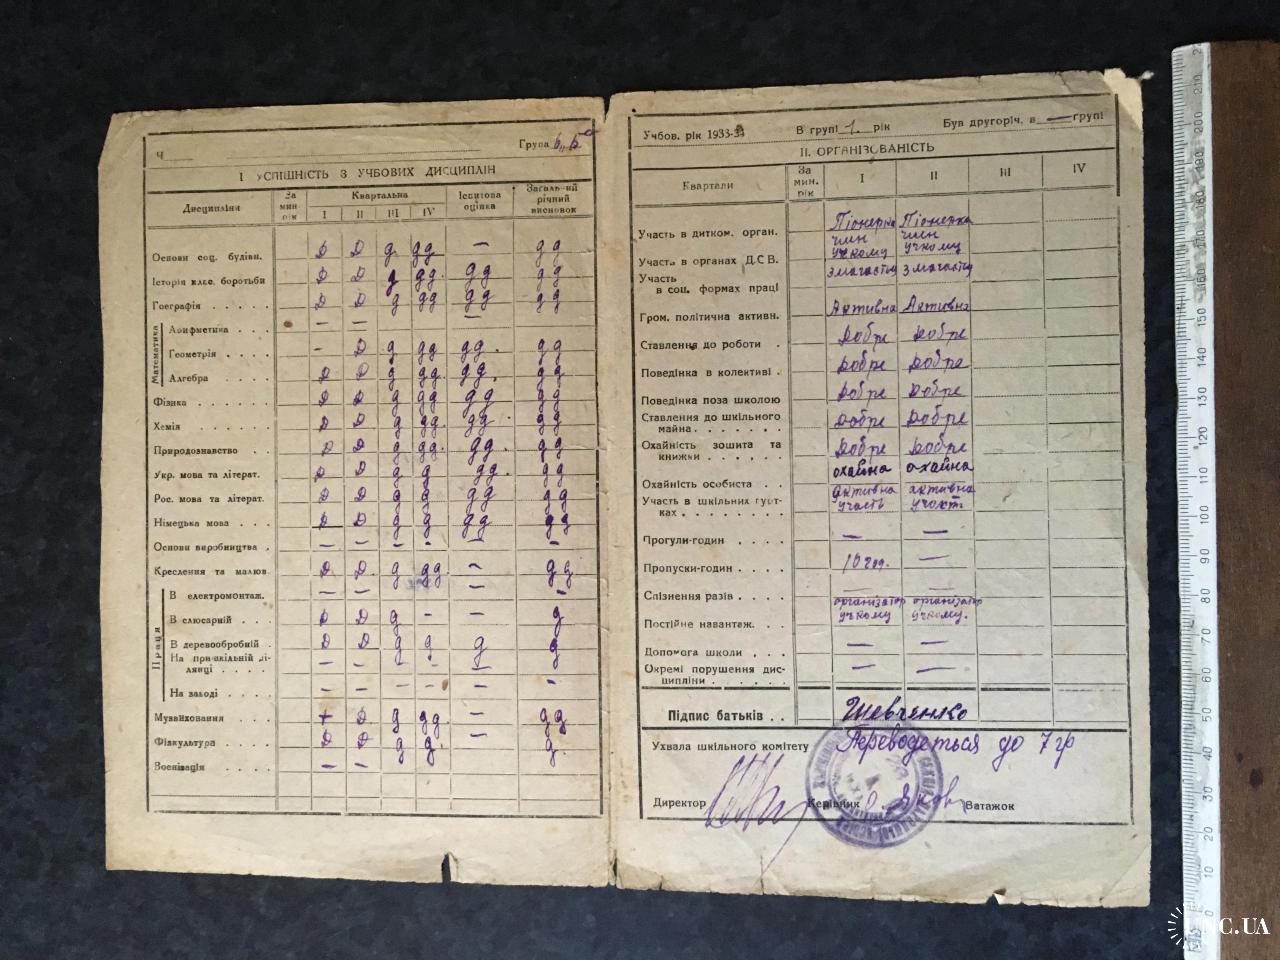 Ч
Група 6 "Б"
I УСПІШНІСТЬ З УЧБОВИХ ДИСЦИПЛІН
Дисципліни За мин. рік Квартальна I II III IV Іспитова оцінка Загальний річний висновок
Основи соц. будівн. Д Д д дд — дд
Історія клас. боротьби Д Д д дд дд дд
Географія Д Д д дд дд дд
Математика
Арифметика . . . — — —
Геометрія . . . . - Д д дд дд. дд
Алгебра . . . . Д Д д дд дд. дд
Фізика . . . . . Д Д д дд дд дд
Хемія . . . . . Д Д д дд дд. дд
Природознавство . . Д Д д дд. дд. дд
Укр. мова та літерат. Д Д д д дд. дд
Рос. мова та літерат. Д Д д д дд дд
Німецька мова . . . Д Д д д дд дд
Основи виробництва . — — — - — —
Креслення та малюв. Д Д. д дд. — дд
Праця
В електромонтаж. — — — — — —
В слюсарній . . . Д Д д - — д
В деревообробній . Д Д д д д д
На пришкільній ділянці . . . . — — — — — —
На заводі . . . . — — — — — —
Музвиховання . . . + Д д дд. — дд
Фізкультура . . . . Д Д д д. — д.
Воєнізація . . . . — —
Учбов. рік 1933-34 В групі 1. рік Був другоріч. в — групі
II. ОРГАНІЗОВАНІСТЬ
Квартали За мин. рік I II III IV
Участь в дитком. орган. Піонерка Піонерка
Участь в органах Д.С.В. член учкому член учкому
Участь в соц. формах праці
Гром. політична активн. Активна Активна
Ставлення до роботи . Добре Добре
Поведінка в колективі . Добре Добре
Поведінка поза школою Добре Добре
Ставлення до шкільного майна . . . . . . Добре Добре
Охайність зошита та книжки . . . . . . Добре Добре
Охайність особиста . . охайна охайна
Участь в шкільних гуртках . . . . . . . активна участь активна
Прогули-годин . . . . — —
Пропуски-годин . . . . 10 год. —
Спізнення разів . . . . — —
Постійне навантаж. . . організатор учкому організатор учкому.
Допомога школи . . . — —
Окремі порушення дисципліни . . . . . . — —
Підпис батьків . . Шевченко
Ухвала шкільного комітету Переводеться до 7 гр
Директор Керівник Ватажок
UNC.UA